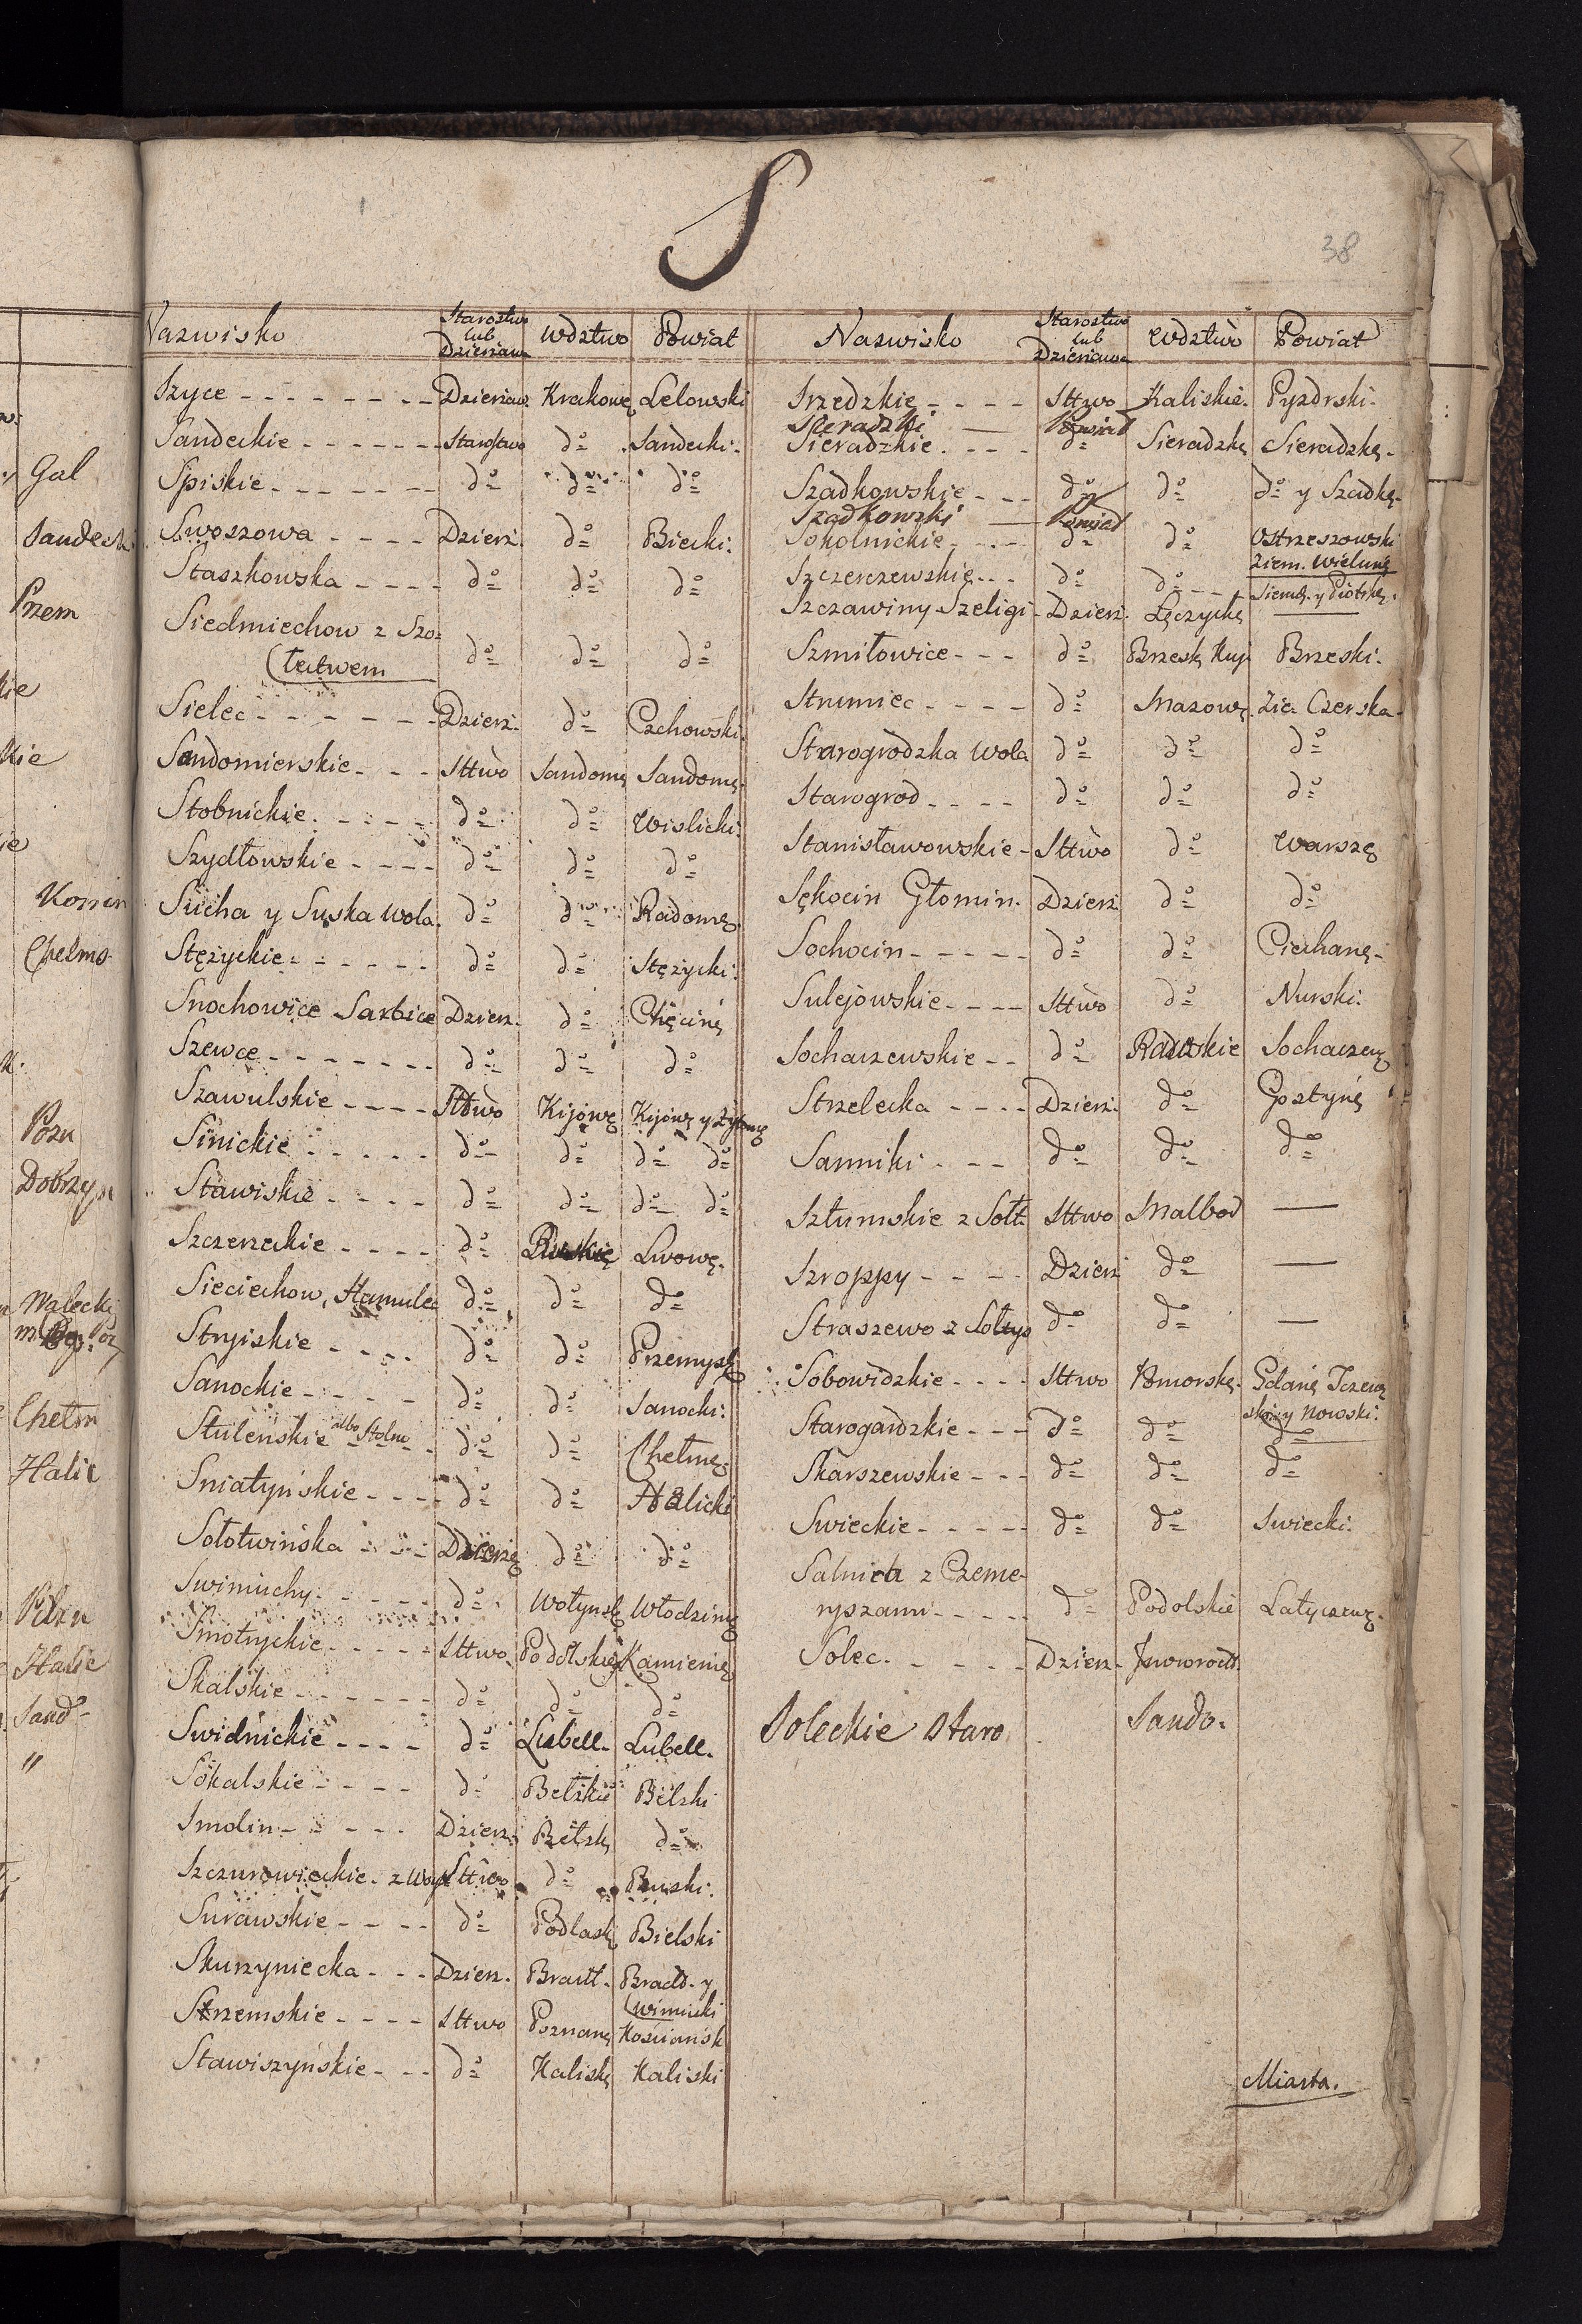 S
38
Nazwisko Starostwo lub Dzierżawa Wdztwo Powiat
Szyce - - - - - - - - Dzierżaw. Krakowę Lelowski
Sandeckie - - - - - - Starostwo do Sandecki.
Spiskie - - - - - - do do do
Swoszowa - - - - Dzierż. do Biecki.
Staszkowska - - - - do do do
Siedmiechow z Szo=
(łectwem do do do
Sielec - - - - - - Dzierż. do Czchowski.
Sandomierskie - - - Sttwo Sandomę Sandomę.
Stobnickie - - - - do do Wislicki.
Szydłowskie - - - - do do do
Sucha y Suska Wola. do do Radomę.
Stężyckie - - - - - - do do Stężycki.
Snochowice Sarbice Dzierż. do Chęcinę
Szewce - - - - - - - do do do
Szawulskie - - - - Sttwo Kijowę Kijowę y Żytomę
Sinickie - - - - - do do do do
Stawiskie - - - - do do do do
Szczerzeckie - - - - do Ruskie Lwowę.
Sieciechow, Hamulec do do do
Stryiskie - - - - do do Przemyslę
Sanockie - - - - - do do Sanocki.
Stulenskie albo Stolno - - do do Chełmę.
Sniatyńskie - - - - do do Halicki
Sołotwińska - - - Dzierżę do do
Swiniuchy - - - - - do Wołynsk Włodzimę
Smotryckie - - - - - Sttwo. Podolskie Kamienię
Skalskie - - - - - - do do do
Swidnickie - - - - do Lubell. Lubell.
Sokalskie - - - - do Bełzkie Bełzki
Smolin - - - - - Dzierż. Bełzk do
Szczurowieckie - z Woyt Sttwo do Buski.
Surawskie - - - - do Podlask Bielski
Skurzyniecka - - - Dzierż. Bractt. Bracld. y
(Winnicki
Strzemskie - - - - Sttwo Poznanę Kościańsk
Stawiszyńskie - - - do Kaliskę Kaliski
Nazwisko Starostwo lub Dzierżawa Wdztwo Powiat
Srzedzkie - - - - Sttwo Kaliskie. Pyzdrski.
Sieradzki — Powiat
Sieradzkie - - - do Sieradzkę Sieradzkę.
Szadkowskie - - - do do do y Szadkę.
Szadkowski — Powiat
Sokolnickie - - - do do Ostrzeszowski
Ziem. Wielunę
Szczerczewskie - - do do Siemę y Piotrkę.
Szczawiny Szeligi - Dzierż. Łęczyckę —
Szmiłowice - - - do Brzesk Kuj. Brzeski.
Strumiec - - - - do Mazowę. Zie. Czerska.
Starogrodzka Wola do do do
Starogrod - - - - do do do
Stanisławowskie - Sttwo do Warszę
Sękocin Głomin. Dzierż do do
Sochocin - - - - - do do Ciechanę.
Sulejowskie - - - - Sttwo do Nurski.
Sochaczewskie - - do Rawskie Sochaczewę
Strzelecka - - - - Dzierż. do Gostynę
Sanniki - - - do do do
Sztumskie z Sołt. Sttwo Malbor —
Szroppy - - - - Dzierż do —
Straszewo z Sołtys do do —
Sobowidzkie - - - - Sttwo Pomorskę. Gdanę Tczew
skiey Nowski.
Starogardzkie - - - do do do
Skarszewskie - - - do do do
Swieckie - - - - - do do Swiecki.
Salnica z Czeme-
ryszami - - - - - do Podolskie Latyczewę.
Solec. - - - - - Dzierż. Jnowrocł.
Soleckie Staro. Sando.
Miasta.
Gal
Sandecki
Przem
kie
kie
Konin
Chełmo
Pozn
Dobrzyn
Walecki
Chełm
Halic
Pilzn
Halic
Sand
"